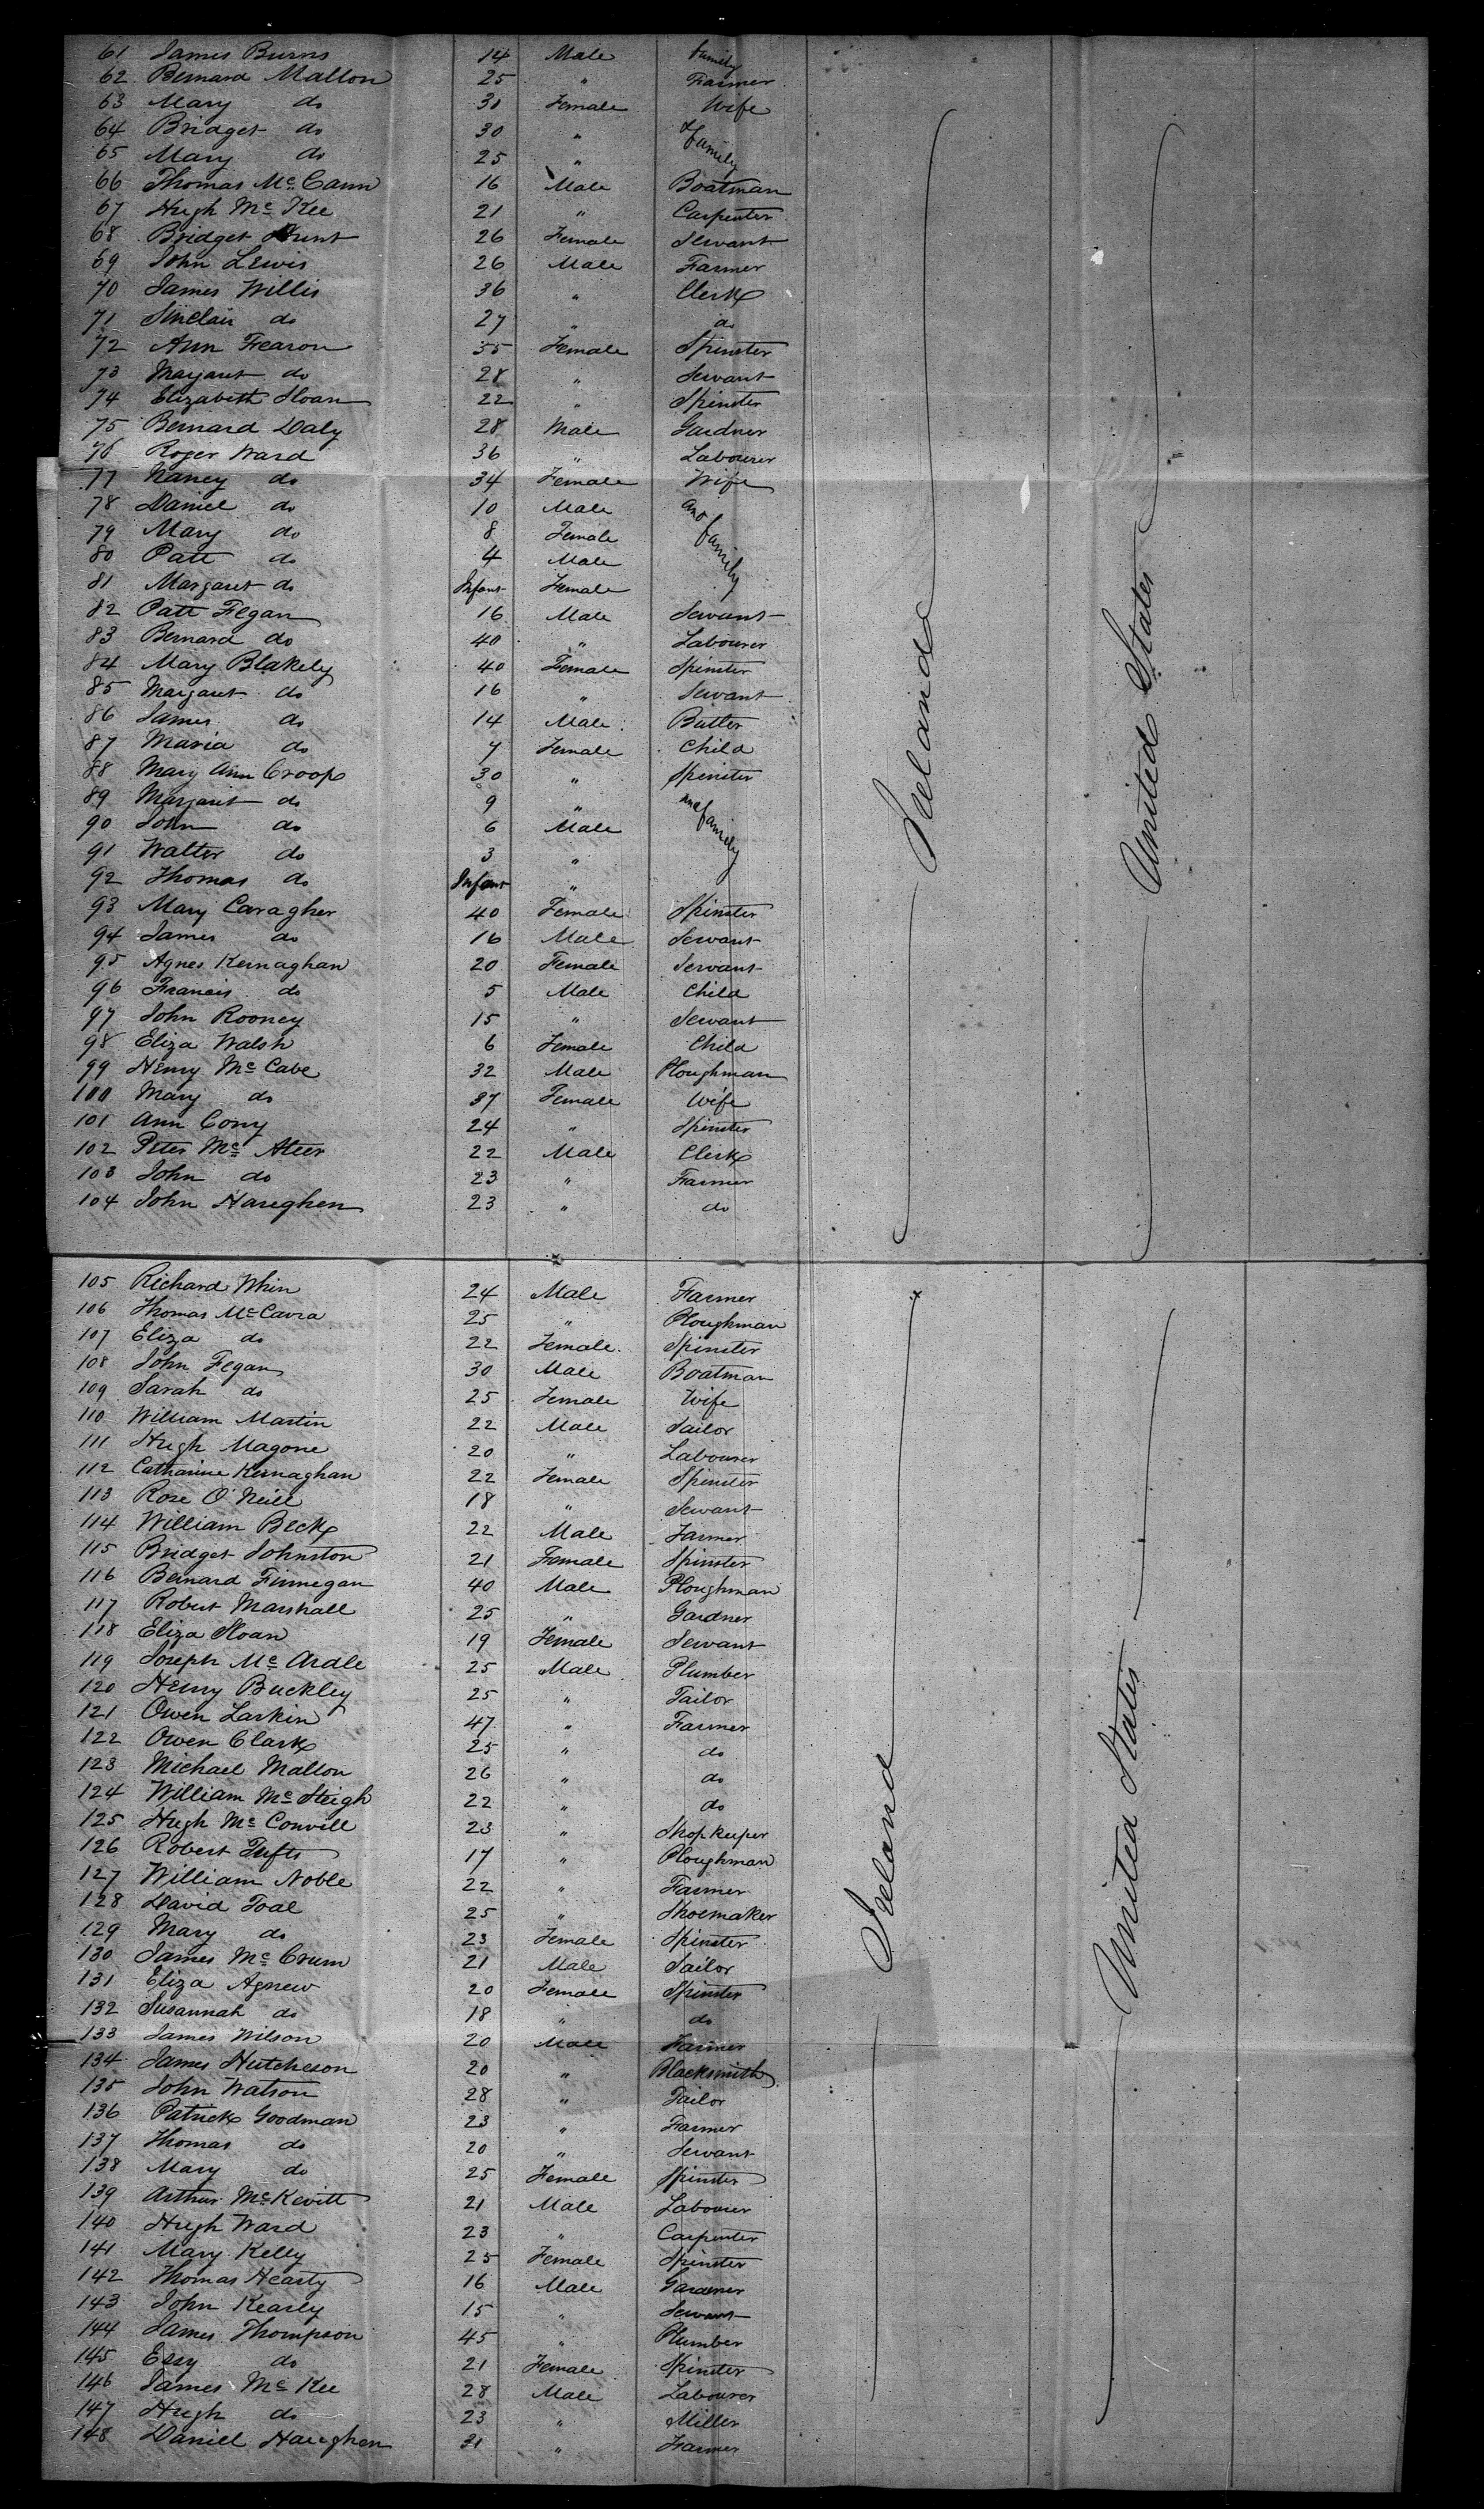 61 James Burns 14 Male family
62 Bernard Mallon 25 " Farmer
63 Mary do 30 Female Wife
64 Bridget do 30 " & family
65 Mary do 25 "
66 Thomas McCann 16 Male Boatman
67 Hugh McKee 21 " Carpenter
68 Bridget Hunt 26 Female Servant
69 John Lewis 26 Male Farmer
70 James Willis 36 " Clerk
71 Sinclair do 27 " do
72 Ann Fearon 35 Female Spinster
73 Margaret do 28 " Servant
74 Elizabeth Sloan 22 " Spinster
75 Bernard Daly 28 Male Gardner
76 Roger Ward 36 " Labourer
77 Nancy do 34 Female Wife
78 Daniel do 10 Male and family
79 Mary do 8 Female
80 Patt do 4 Male
81 Margaret do Infant Female
82 Patt Fegan 16 Male Servant
83 Bernard do 40 " Labourer
84 Mary Blakely 40 Female Spinster
85 Margaret do 16 " Servant
86 James do 14 Male Butler
87 Maria do 7 Female Child
88 Mary Ann Croop 30 " Spinster
89 Margaret do 9 " and family
90 John do 6 Male
91 Walter do 3 "
92 Thomas do Infant "
93 Mary Caragher 40 Female Spinster
94 James do 16 Male Servant
95 Agnes Kernaghan 20 Female Servant
96 Francis do 5 Male Child
97 John Rooney 15 " Servant
98 Eliza Walsh 6 Female Child
99 Henry McCabe 32 Male Ploughman
100 Mary do 37 Female Wife
101 Ann Cony 24 " Spinster
102 Peter McAteer 22 Male Clerk
103 John do 23 " Farmer
104 John Hareghen 23 " do
Ireland
United States
105 Richard Whin 24 Male Farmer
106 Thomas McCavra 25 " Ploughman
107 Eliza do 22 Female Spinster
108 John Fegan 30 Male Boatman
109 Sarah do 25 Female Wife
110 William Martin 22 Male Sailor
111 Hugh Magone 20 " Labourer
112 Catharine Kernaghan 22 Female Spinster
113 Rose O'Neill 18 " Servant
114 William Beck 22 Male Farmer
115 Bridget Johnston 21 Female Spinster
116 Bernard Finnegan 40 Male Ploughman
117 Robert Marshall 25 " Gardner
118 Eliza Sloan 19 Female Servant
119 Joseph McArdle 25 Male Plumber
120 Henry Buckley 25 " Tailor
121 Owen Larkin 47 " Farmer
122 Owen Clark 25 " do
123 Michael Mallon 26 " do
124 William McSteigh 22 " do
125 Hugh McConvill 23 " Shopkeeper
126 Robert Tufts 17 " Ploughman
127 William Noble 22 " Farmer
128 David Toal 25 " Shoemaker
129 Mary do 23 Female Spinster
130 James McCrum 21 Male Sailor
131 Eliza Agnew 20 Female Spinster
132 Susannah do 18 " do
133 James Wilson 20 Male Farmer
134 James Hutcheson 20 " Blacksmith
135 John Watson 28 " Tailor
136 Patrick Goodman 23 " Farmer
137 Thomas do 20 " Servant
138 Mary do 25 Female Spinster
139 Arthur McKevitt 21 Male Labourer
140 Hugh Ward 23 " Carpenter
141 Mary Kelly 25 Female Spinster
142 Thomas Hearty 16 Male Gardener
143 John Kearly 15 " Servant
144 James Thompson 45 " Plumber
145 Essy do 21 Female Spinster
146 James McKee 28 Male Labourer
147 Hugh do 23 " Miller
148 Daniel Haughen 31 " Farmer
Ireland
United States